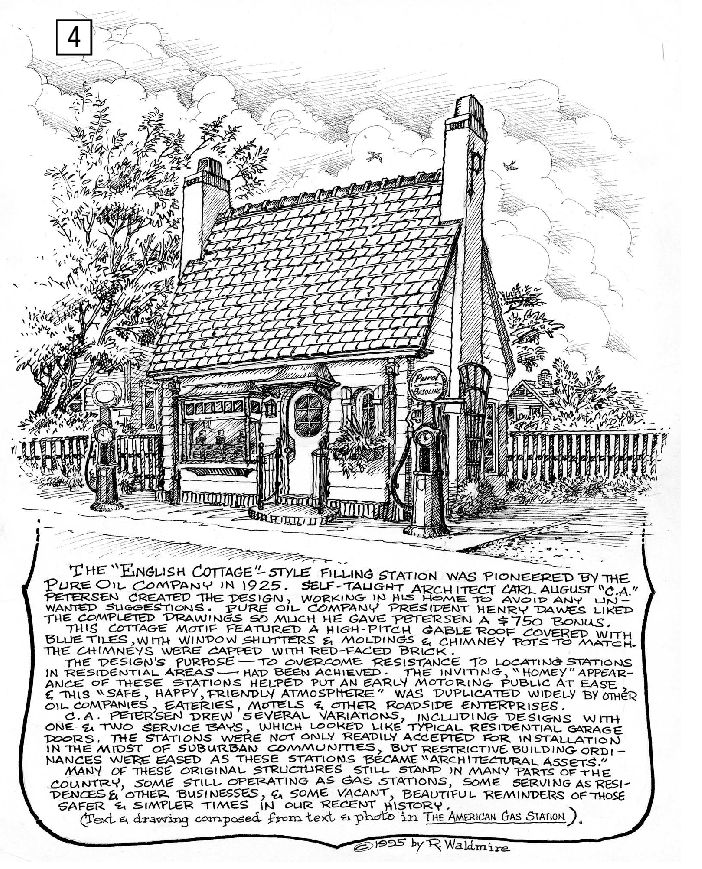 4
P
Purol
GASOLINE
THE "ENGLISH COTTAGE"-STYLE FILLING STATION WAS PIONEERED BY THE
PURE OIL COMPANY IN 1925. SELF-TAUGHT ARCHITECT CARL AUGUST "C.A."
PETERSEN CREATED THE DESIGN, WORKING IN HIS HOME TO AVOID ANY UN-
WANTED SUGGESTIONS. PURE OIL COMPANY PRESIDENT HENRY DAWES LIKED
THE COMPLETED DRAWINGS SO MUCH HE GAVE PETERSEN A $750 BONUS.
THIS COTTAGE MOTIF FEATURED A HIGH-PITCH GABLE ROOF COVERED WITH
BLUE TILES, WITH WINDOW SHUTTERS & MOLDINGS & CHIMNEY POTS TO MATCH.
THE CHIMNEYS WERE CAPPED WITH RED-FACED BRICK.
THE DESIGN'S PURPOSE — TO OVERCOME RESISTANCE TO LOCATING STATIONS
IN RESIDENTIAL AREAS — HAD BEEN ACHIEVED. THE INVITING, "HOMEY" APPEAR-
ANCE OF THESE STATIONS HELPED PUT AN EARLY MOTORING PUBLIC AT EASE,
& THIS "SAFE, HAPPY, FRIENDLY ATMOSPHERE" WAS DUPLICATED WIDELY BY OTHER
OIL COMPANIES, EATERIES, MOTELS & OTHER ROADSIDE ENTERPRISES.
C.A. PETERSEN DREW SEVERAL VARIATIONS, INCLUDING DESIGNS WITH
ONE & TWO SERVICE BAYS, WHICH LOOKED LIKE TYPICAL RESIDENTIAL GARAGE
DOORS. THE STATIONS WERE NOT ONLY READILY ACCEPTED FOR INSTALLATION
IN THE MIDST OF SUBURBAN COMMUNITIES, BUT RESTRICTIVE BUILDING ORDI-
NANCES WERE EASED AS THESE STATIONS BECAME "ARCHITECTURAL ASSETS."
MANY OF THESE ORIGINAL STRUCTURES STILL STAND IN MANY PARTS OF THE
COUNTRY, SOME STILL OPERATING AS GAS STATIONS, SOME SERVING AS RESI-
DENCES & OTHER BUSINESSES, & SOME VACANT, BEAUTIFUL REMINDERS OF THOSE
SAFER & SIMPLER TIMES IN OUR RECENT HISTORY.
(Text & drawing composed from text & photo in THE AMERICAN GAS STATION).
©1995 by R. Waldmire